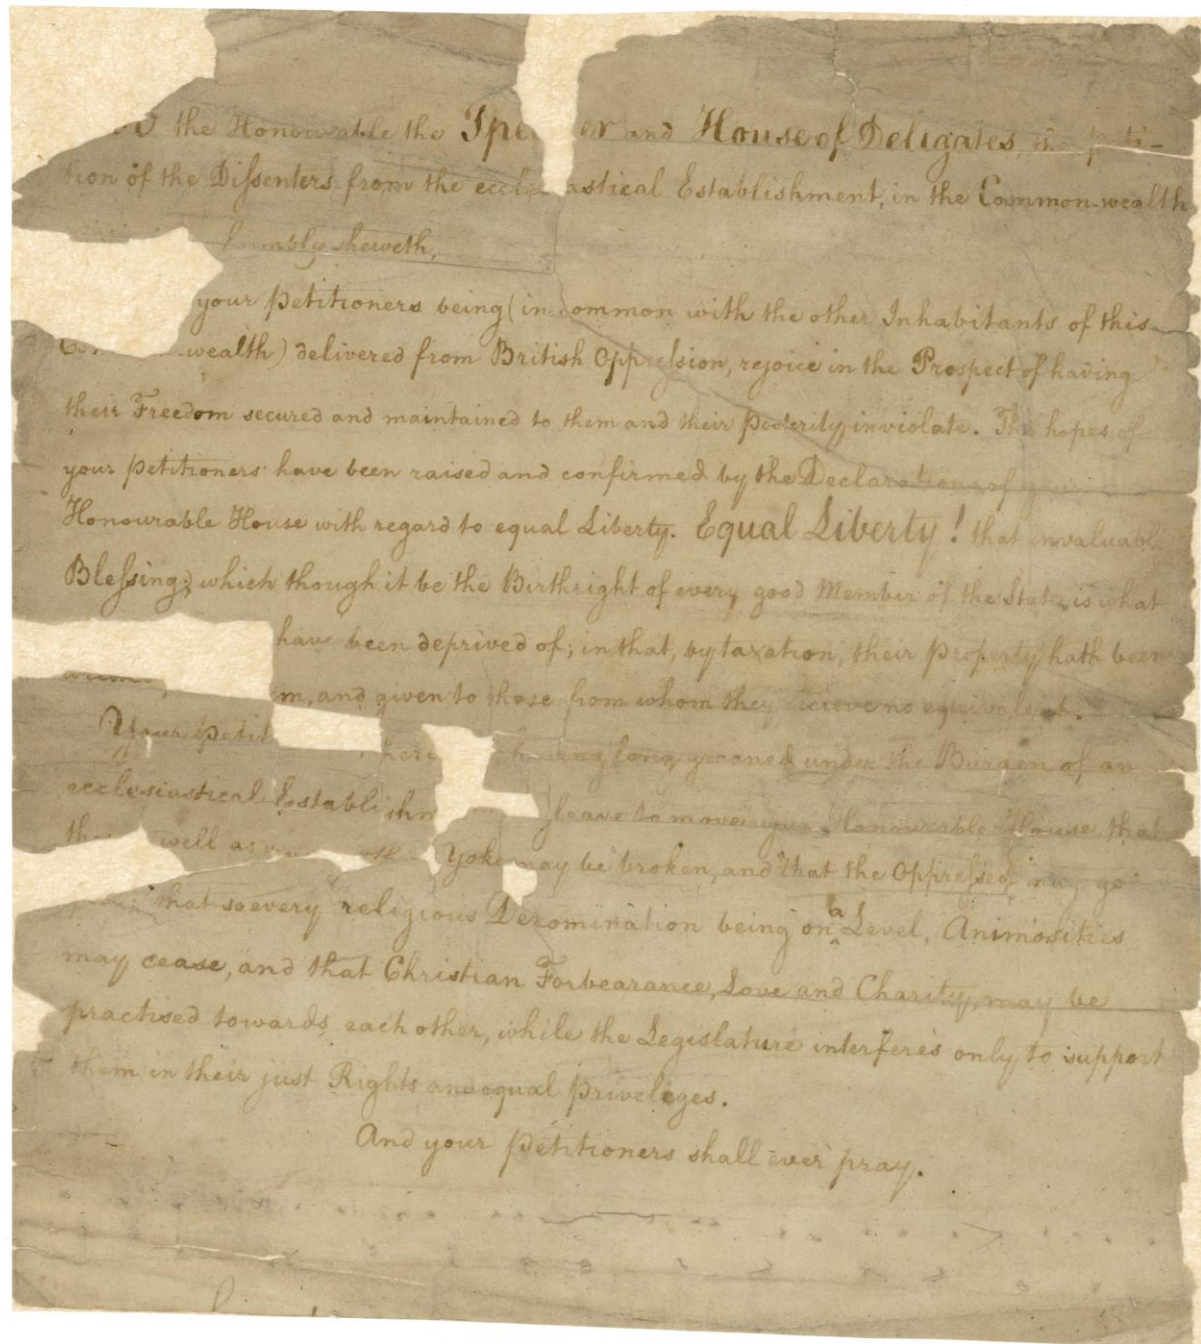 the Honourable the Speker and House of Delegates, the peti-
tion of the Dissenters from the ecclesiastical Establishment, in the Common-wealth
humbly sheweth,
your Petitioners being (in common with the other Inhabitants of this
wealth) delivered from British Oppression, rejoice in the Prospect of having
their Freedom secured and maintained to them and their posterity inviolate. The hopes of
your petitioners have been raised and confirmed by the Declaration of
Honourable House with regard to equal Liberty. Equal Liberty! that invaluable
Blessing; which though it be the Birthright of every good Member of the State, is what
have been deprived of; in that, by taxation, their Property hath been
m, and given to those from whom they recieve no equivalent.
Your Petit having long groaned under the Burden of an
ecclesiastical Establishm leave to move your Honourable House that
well as Yoke may be broken, and that the Oppressed may go
that so every religious Denomination being on a Level, Animosities
may cease, and that Christian Forbearance, Love and Charity, may be
practised towards each other, while the Legislature interferes only to support
them in their just Rights and equal priveleges.
And your Petitioners shall ever pray.